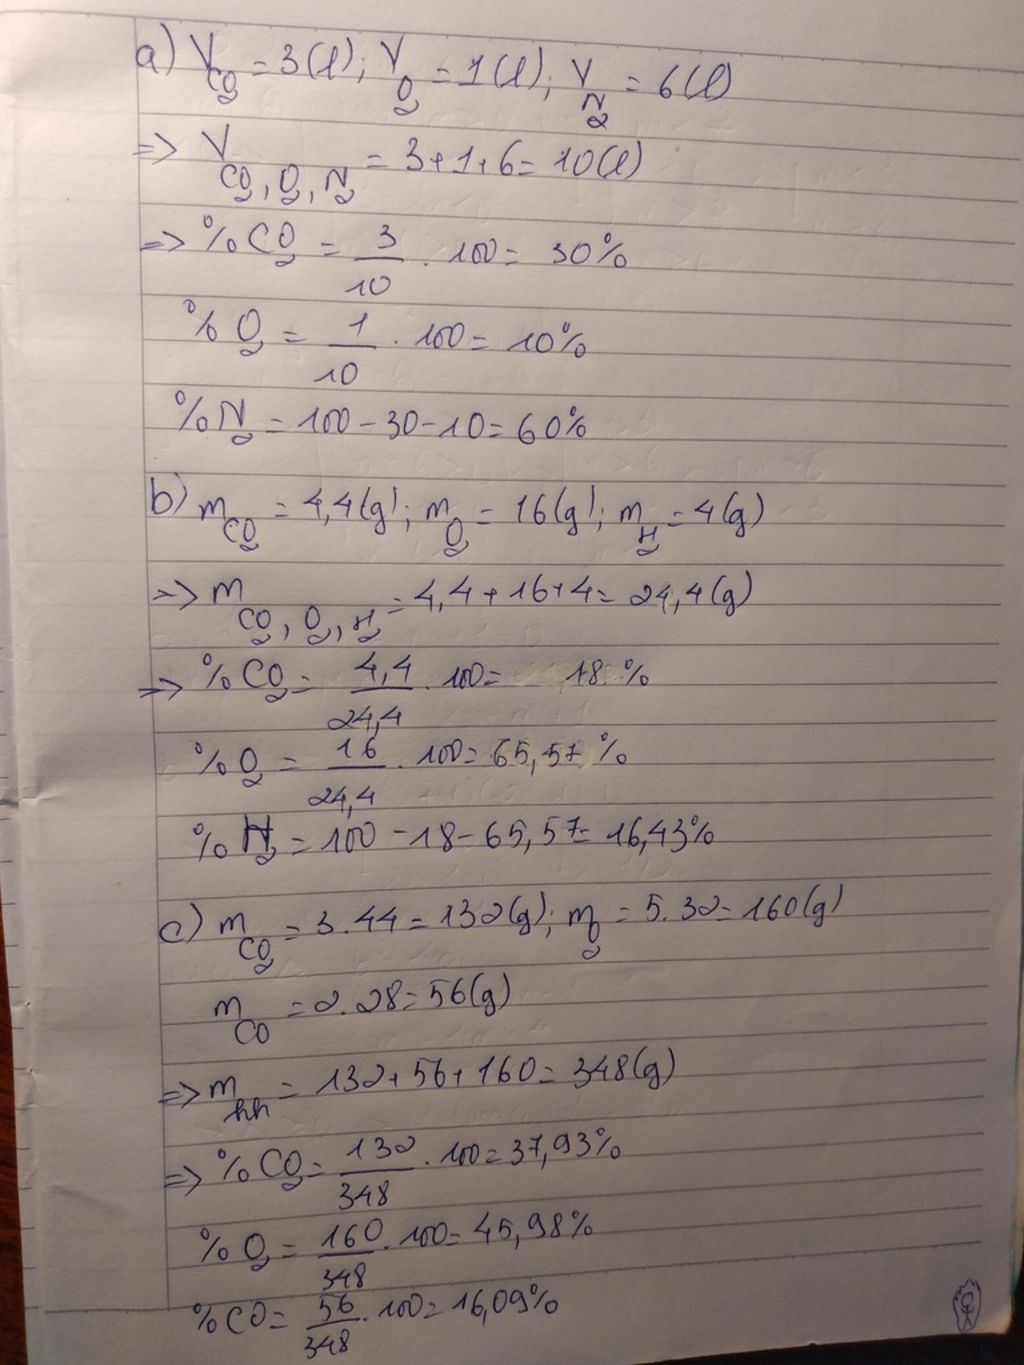 a) V CO2 = 3(l); V O2 = 1(l); V N2 = 6(l)
=> V CO2, O2, N2 = 3+1+6= 10(l)
=> % CO2 = 3/10 . 100 = 30%
% O2 = 1/10 . 100 = 10%
% N2 = 100 - 30 - 10 = 60%
b) m CO2 = 4,4(g); m O2 = 16(g); m H2 = 4(g)
=> m CO2, O2, H2 = 4,4 + 16 + 4 = 24,4(g)
=> % CO2 = 4,4/24,4 . 100 = 18 %
% O2 = 16/24,4 . 100 = 65,57 %
% H2 = 100 - 18 - 65,57 = 16,43%
c) m CO2 = 3.44 = 132(g); m O2 = 5.32 = 160(g)
m CO = 2.28 = 56(g)
=> m hh = 132 + 56 + 160 = 348(g)
=> % CO2 = 132/348 . 100 = 37,93%
% O2 = 160/348 . 100 = 45,98%
% CO = 56/348 . 100 = 16,09%